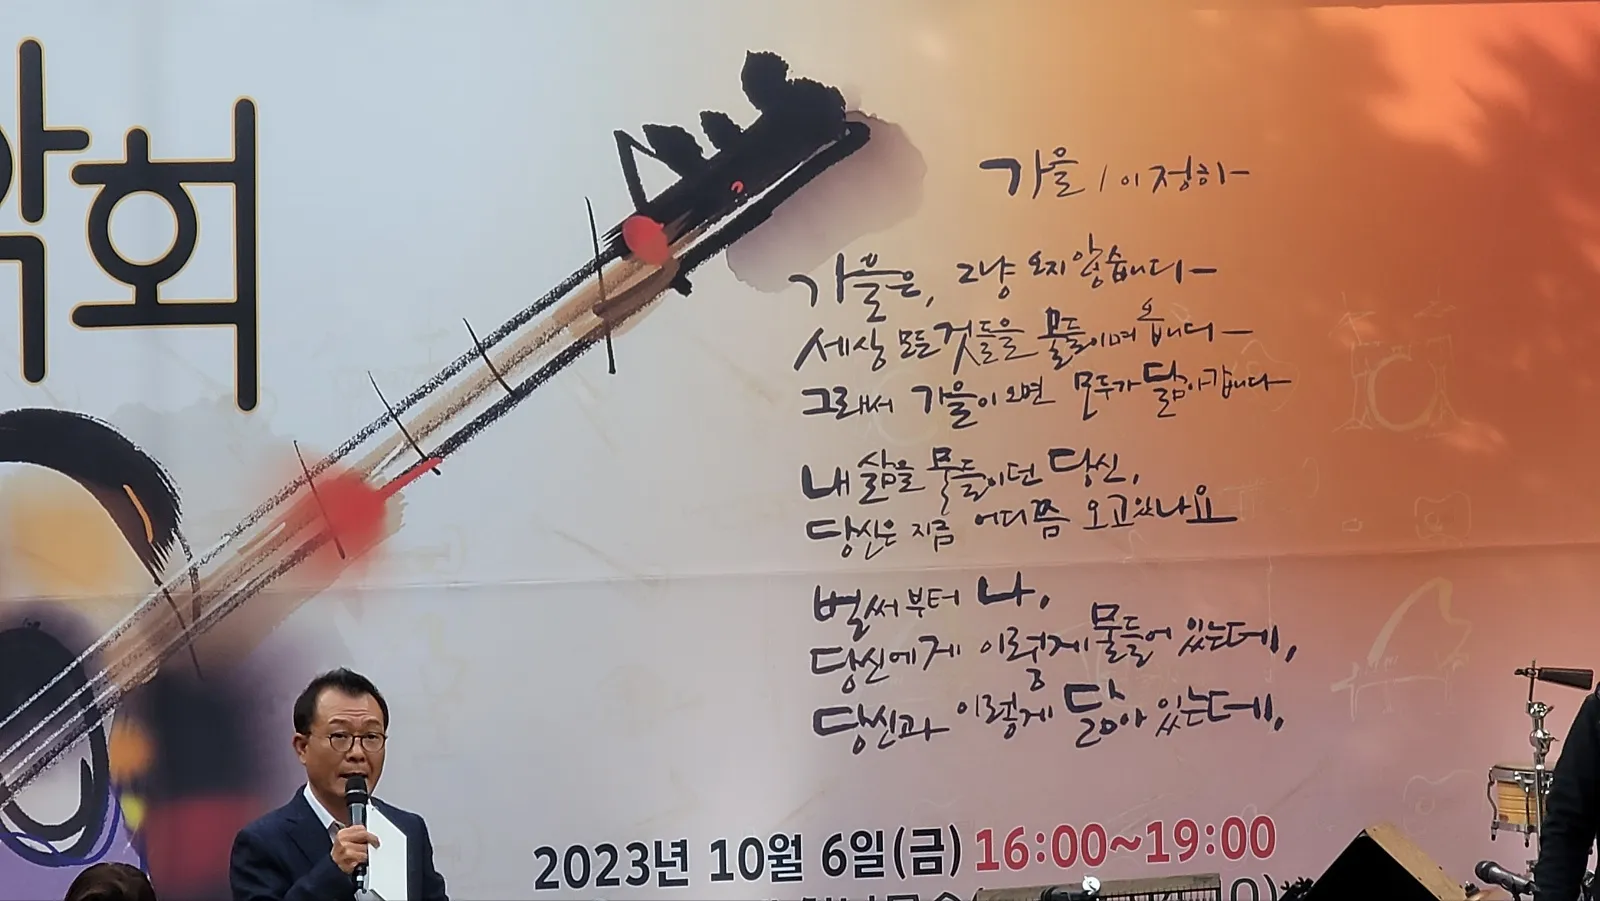 악회
가을 / 이정하
가을은, 그냥 오지 않습니다
세상 모든 것들을 물들이며 옵니다
그래서 가을이 오면 모두가 닮아갑니다
내 삶을 물들이던 당신,
당신은 지금 어디쯤 오고 있나요
벌써부터 나,
당신에게 이렇게 물들어 있는데,
당신과 이렇게 닮아 있는데,
2023년 10월 6일(금) 16:00~19:00